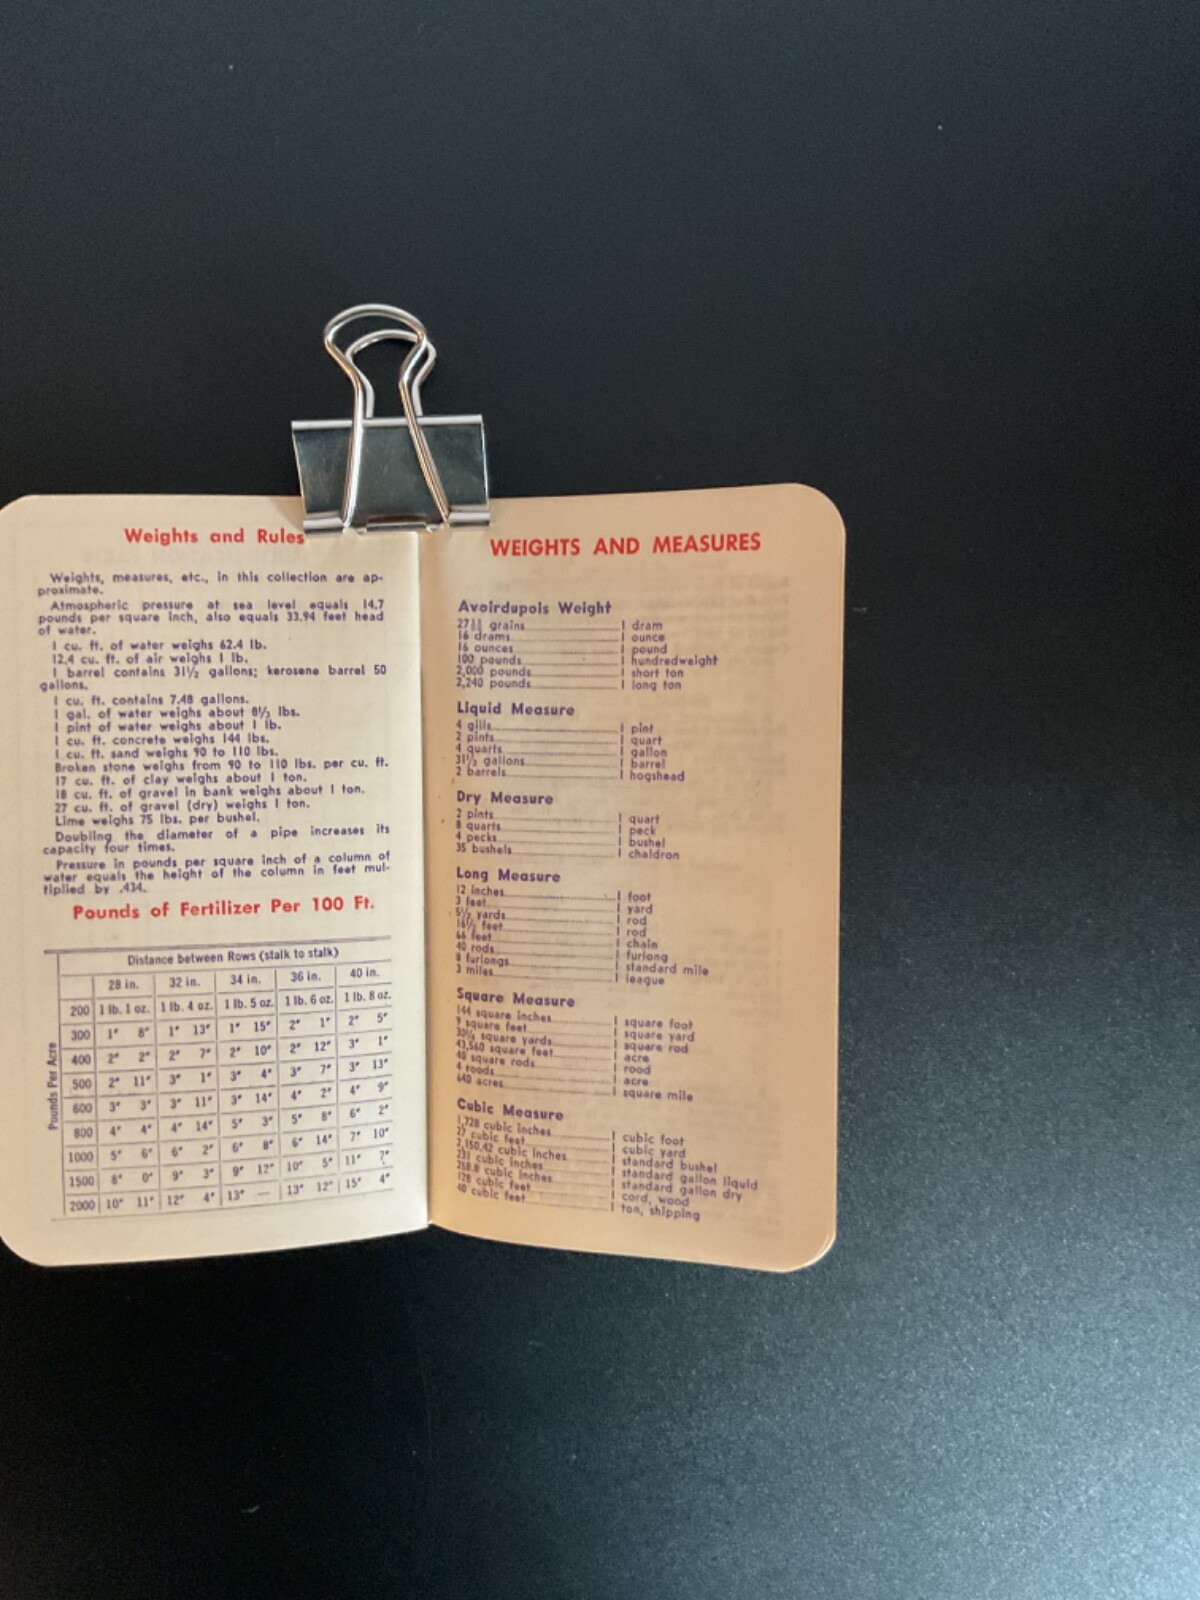 Weights and Rules
Weights, measures, etc., in this collection are ap-
proximate.
Atmospheric pressure at sea level equals 14.7
pounds per square inch, also equals 33.94 feet head
of water.
1 cu. ft. of water weighs 62.4 lb.
12.4 cu. ft. of air weighs 1 lb.
1 barrel contains 31½ gallons; kerosene barrel 50
gallons.
1 cu. ft. contains 7.48 gallons.
1 gal. of water weighs about 8⅓ lbs.
1 pint of water weighs about 1 lb.
1 cu. ft. concrete weighs 144 lbs.
1 cu. ft. sand weighs 90 to 110 lbs.
Broken stone weighs from 90 to 110 lbs. per cu. ft.
17 cu. ft. of clay weighs about 1 ton.
18 cu. ft. of gravel in bank weighs about 1 ton.
27 cu. ft. of gravel (dry) weighs 1 ton.
Lime weighs 75 lbs. per bushel.
Doubling the diameter of a pipe increases its
capacity four times.
Pressure in pounds per square inch of a column of
water equals the height of the column in feet mul-
tiplied by .434.
Pounds of Fertilizer Per 100 Ft.
Distance between Rows (stalk to stalk)
28 in. 32 in. 34 in. 36 in. 40 in.
Pounds Per Acre
200 1 lb. 1 oz. 1 lb. 4 oz. 1 lb. 5 oz. 1 lb. 6 oz. 1 lb. 8 oz.
300 1" 8" 1" 13" 1" 15" 2" 1" 2" 5"
400 2" 2" 2" 7" 2" 10" 2" 12" 3" 1"
500 2" 11" 3" 1" 3" 4" 3" 7" 3" 13"
600 3" 3" 3" 11" 3" 14" 4" 2" 4" 9"
800 4" 4" 4" 14" 5" 3" 5" 8" 6" 2"
1000 5" 6" 6" 2" 6" 8" 6" 14" 7" 10"
1500 8" 0" 9" 3" 9" 12" 10" 5" 11" 7"
2000 10" 11" 12" 4" 13" — 13" 12" 15" 4"
WEIGHTS AND MEASURES
Avoirdupois Weight
27 grains 1 dram
16 drams 1 ounce
16 ounces 1 pound
100 pounds 1 hundredweight
2,000 pounds 1 short ton
2,240 pounds 1 long ton
Liquid Measure
4 gills 1 pint
2 pints 1 quart
4 quarts 1 gallon
31½ gallons 1 barrel
2 barrels 1 hogshead
Dry Measure
2 pints 1 quart
8 quarts 1 peck
4 pecks 1 bushel
35 bushels 1 chaldron
Long Measure
12 inches 1 foot
3 feet 1 yard
5½ yards 1 rod
16½ feet 1 rod
66 feet 1 chain
40 rods 1 furlong
8 furlongs 1 standard mile
3 miles 1 league
Square Measure
144 square inches 1 square foot
9 square feet 1 square yard
30¼ square yards 1 square rod
43,560 square feet 1 acre
40 square rods 1 rood
4 roods 1 acre
640 acres 1 square mile
Cubic Measure
1,728 cubic inches 1 cubic foot
27 cubic feet 1 cubic yard
2,150.42 cubic inches 1 standard bushel
231 cubic inches 1 standard gallon liquid
268.8 cubic inches 1 standard gallon dry
128 cubic feet 1 cord, wood
40 cubic feet 1 ton, shipping